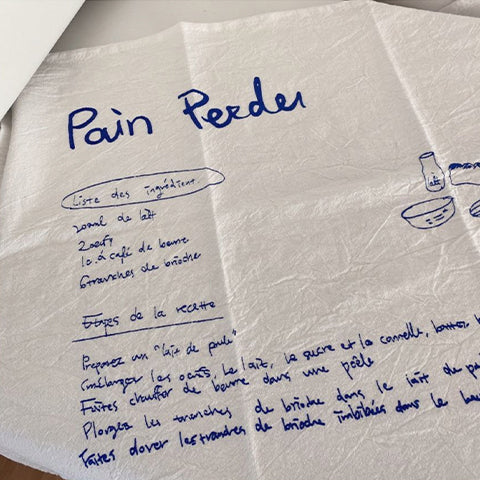 Pain Perdu
Liste des ingrédient
200ml de lait
2 oeufs
1c.à café de beurre
6 tranches de brioche
Etapes de la recette
Préparez un "lait de poule"
(mélangez les oeufs, le lait, le sucre et la cannelle, battez
Faites chauffer de beurre dans une poêle
Plongez les tranches de brioche dans le lait de
Faites dorer les tranches de brioche imbibées dans le
lait